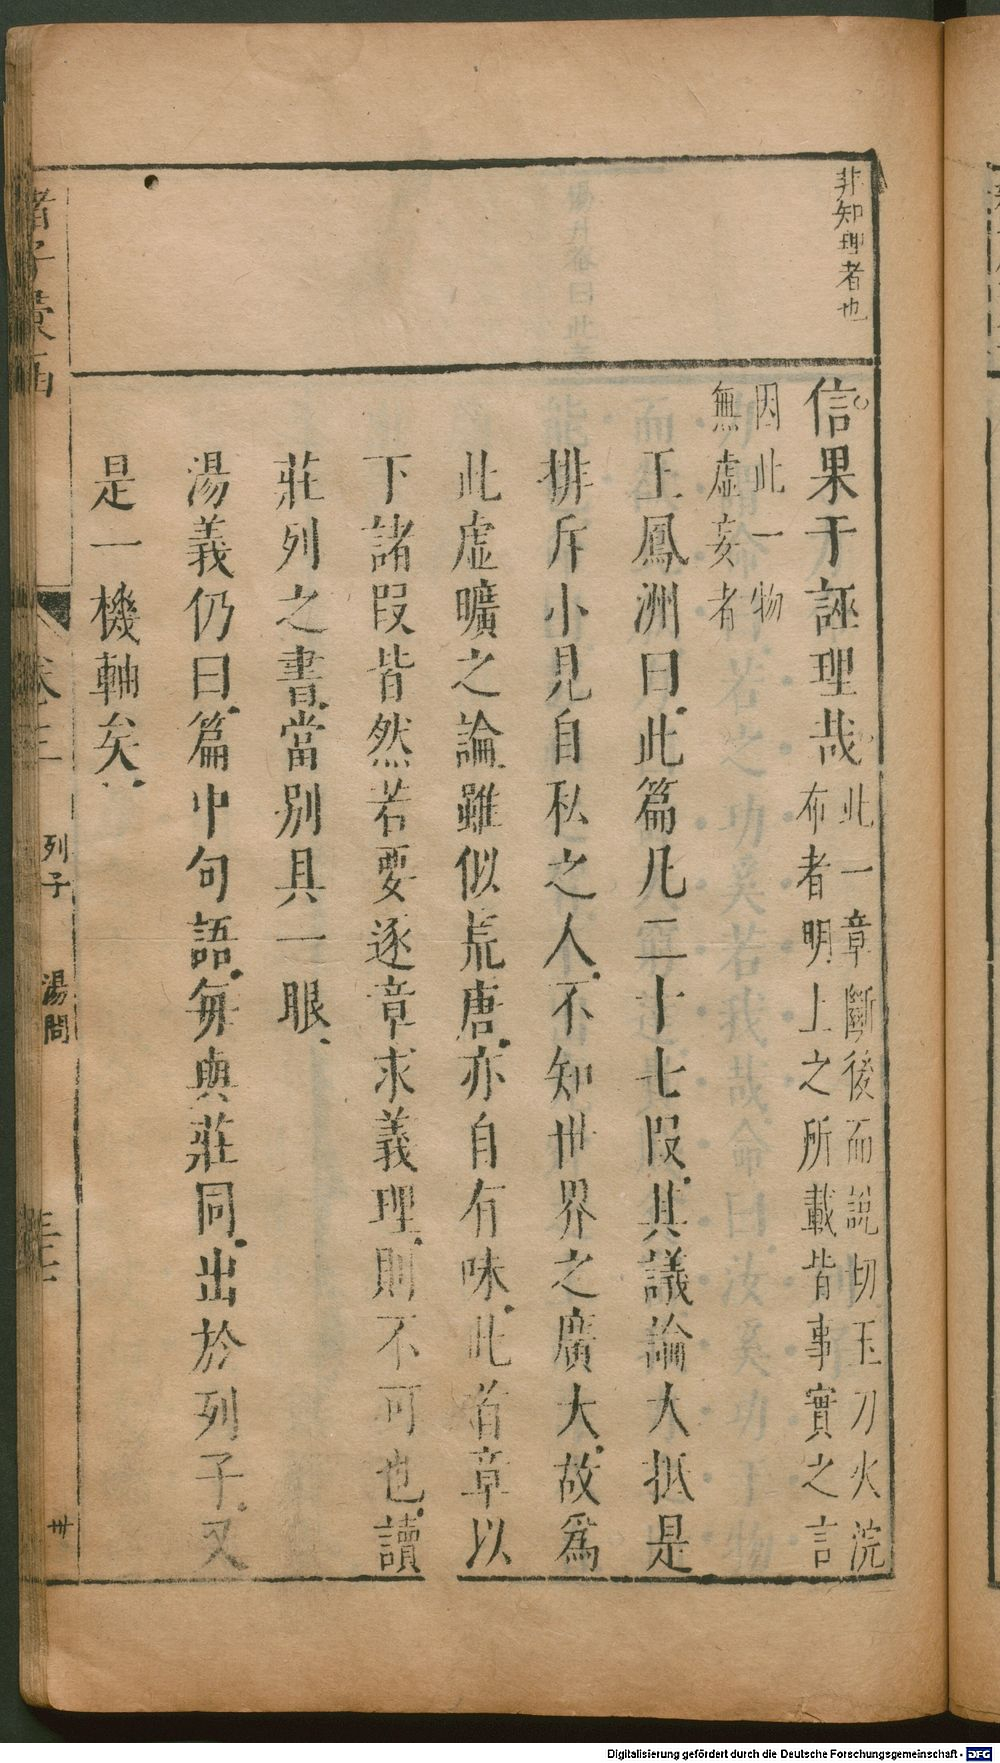 非知理者也
信果于誣理哉此一章斷後而說切玉刀火浣
布者明上之所載皆事實之言
因此一物
無虛妄者
王鳳洲曰此篇凡二十七段其議論大抵是
排斥小見自私之人不知世界之廣大故爲
此虛曠之論雖似荒唐亦自有味此首章以
下諸段皆然若要逐章求義理則不可也讀
莊列之書當別具一眼
湯義仍曰篇中句語每與莊同出於列子又
是一機軸矣
諸子彙函
卷三
列子
湯問
卅
Digitalisierung gefördert durch die Deutsche Forschungsgemeinschaft - DFG